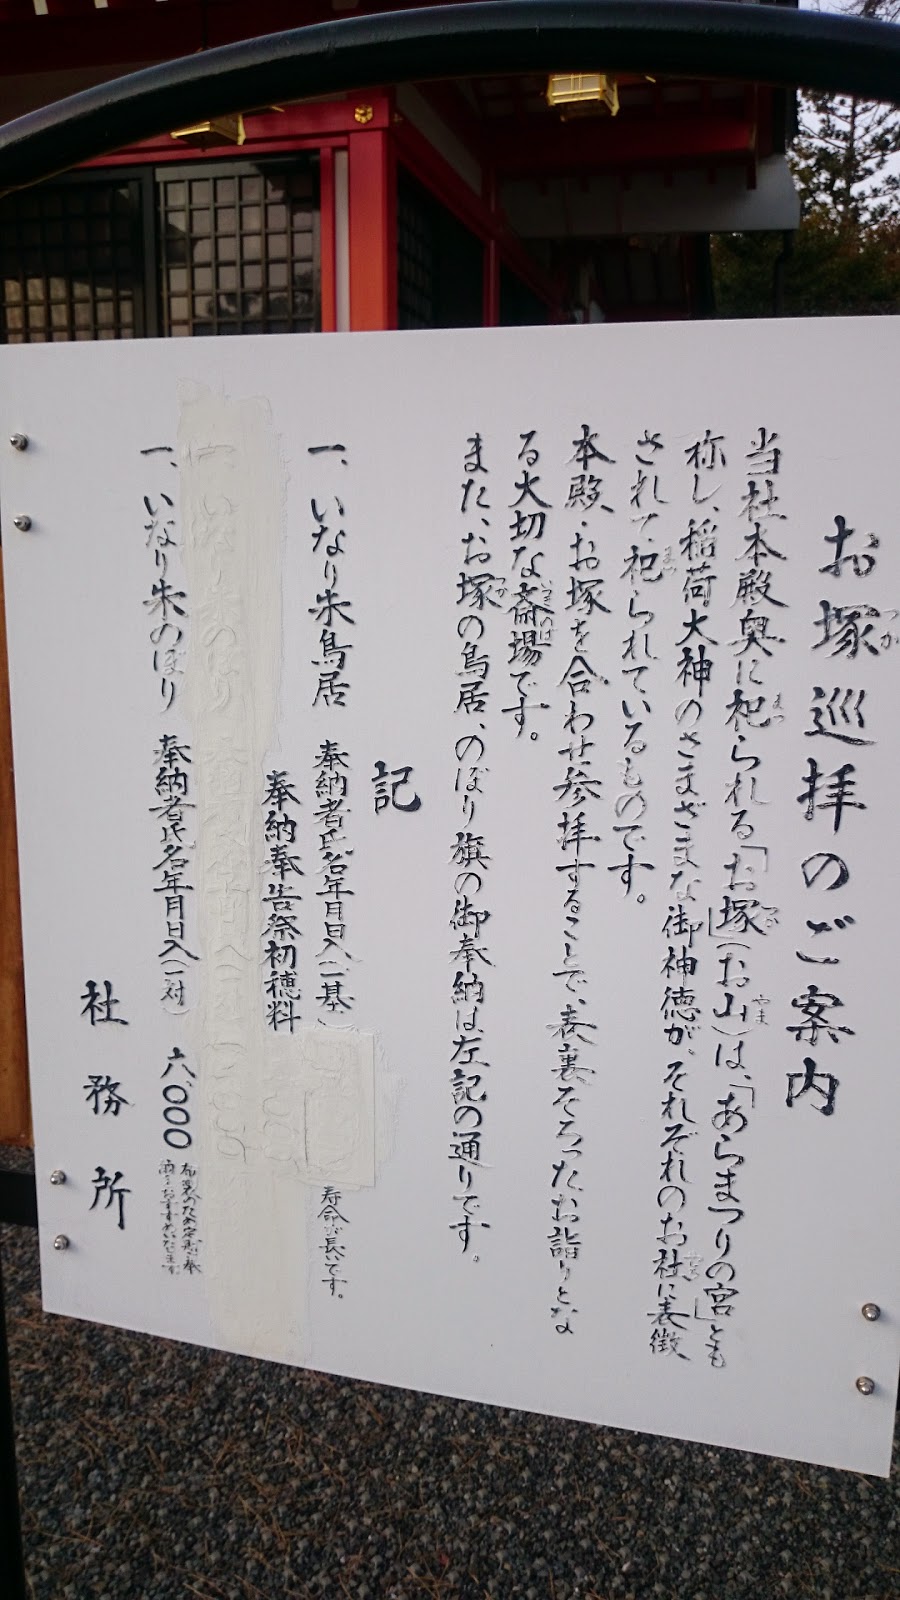 お塚巡拝のご案内
当社本殿奥に祀られる「お塚」(お山)は、「あらまつりの宮」とも
称し、稲荷大神のさまざまな御神徳が、それぞれのお社に表徴
されて、祀られているものです。
本殿・お塚を合わせ参拝することで、表裏そろったお詣りとな
る大切な斎場です。
また、お塚の鳥居、のぼり旗の御奉納は左記の通りです。
記
一、いなり朱鳥居 奉納者氏名年月日入(一基) 寿命が長いです。
奉納奉告祭初穂料
一、いなり朱のぼり 奉納者氏名年月日入(一対) 六、000
社務所